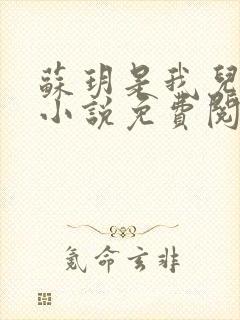 蘇玥是我兒
小說免費閱
氪命玄非